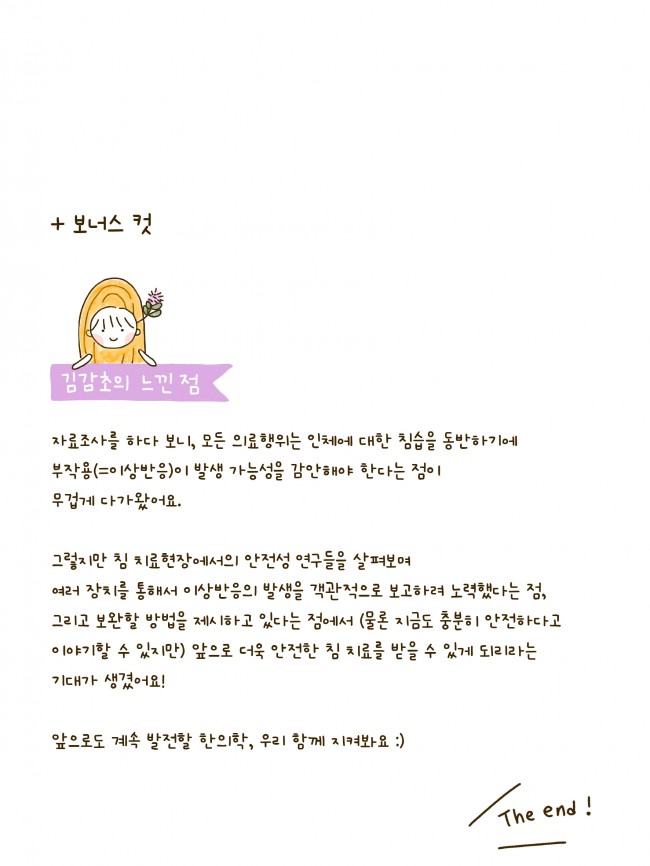 + 보너스 컷
김감초의 느낀 점
자료조사를 하다 보니, 모든 의료행위는 인체에 대한 침습을 동반하기에
부작용(=이상반응)이 발생 가능성을 감안해야 한다는 점이
무겁게 다가왔어요.
그렇지만 침 치료현장에서의 안전성 연구들을 살펴보며
여러 장치를 통해서 이상반응의 발생을 객관적으로 보고하려 노력했다는 점,
그리고 보완할 방법을 제시하고 있다는 점에서 (물론 지금도 충분히 안전하다고
이야기할 수 있지만) 앞으로 더욱 안전한 침 치료를 받을 수 있게 되리라는
기대가 생겼어요!
앞으로도 계속 발전할 한의학, 우리 함께 지켜봐요 :)
The end !